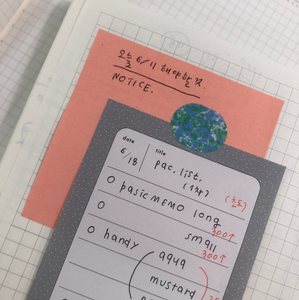 오늘 6/11 해야할 것.
NOTICE.
date
6/18
title
pac. list.
(1차)
O basic MEMO long
300↑
O small
300↑
O handy aqua
mustard